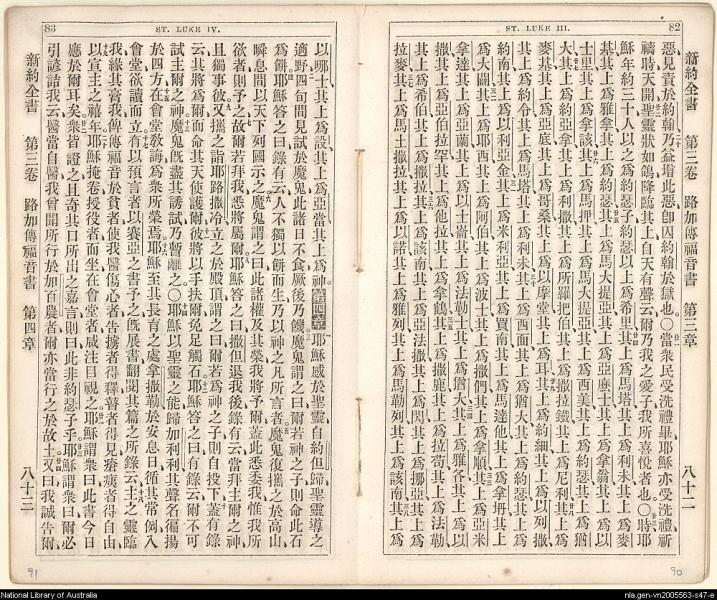 82
ST. LUKE III.
新約全書 第三卷 路加傳福音書 第三章 八十二
惡見責於約翰乃益增此惡卽囚約翰於獄也○當衆民受洗禮畢耶穌亦受洗禮祈
禱時天開聖靈狀如鴿降臨其上自天有聲云爾乃我之愛子我所喜悅者也○時耶
穌年約三十人以之爲約瑟子約瑟以上爲希里其上爲馬塔其上爲利未其上爲麥
基其上爲雅拿其上爲約瑟其上爲馬大提亞其上爲亞麼士其上爲拿翁其上爲以
士里其上爲拿該其上爲馬押其上爲馬大提亞其上爲西美其上爲約瑟其上爲猶
大其上爲約亞拿其上爲利撒其上爲所羅把伯其上爲撒拉鐵其上爲尼利其上爲
麥基其上爲亞底其上爲哥桑其上爲以摩堂其上爲耳其上爲約細其上爲以列撒
其上爲約令其上爲馬塔其上爲利未其上爲西面其上爲猶大其上爲約瑟其上爲
約南其上爲以利亞金其上爲米利亞其上爲買南其上爲馬達他其上爲拿坍其上
爲大闢其上爲耶西其上爲阿伯其上爲波士其上爲撒們其上爲拿順其上爲亞米
拿達其上爲亞蘭其上爲以士崙其上爲法勒士其上爲猶大其上爲雅各其上爲以
撒其上爲亞伯拉罕其上爲他拉其上爲拿鶴其上爲撒鹿其上爲拉荀其上爲法勒
其上爲希伯其上爲撒拉其上爲該南其上爲亞法撒其上爲閃其上爲挪亞其上爲
拉麥其上爲馬土撒拉其上爲以諾其上爲雅列其上爲馬勒列其上爲該南其上爲
90
83
ST. LUKE IV.
以哪士其上爲設其上爲亞當其上爲神第四章耶穌感於聖靈自約但歸聖靈導之
適野四旬間見試於魔鬼此諸日不食厥後乃饑魔鬼謂之曰爾若神之子則命此石
爲餅耶穌答之曰錄有云人不獨以餅而生乃以神之凡所言者魔鬼復攜之於高山
瞬息間以天下列國示之魔鬼謂之曰此諸權及其榮我將予爾蓋此悉委我惟我所
欲者則予之故爾若拜我悉將屬爾耶穌答之曰撒但退我後錄有云當拜主爾之神
且獨事彼又攜之詣耶路撒冷立之於殿頂謂之曰爾若爲神之子則自投下蓋有錄
云其將爲爾而命其天使護爾彼將以手扶爾免足觸石耶穌答之曰有錄云爾不可
試主爾之神魔鬼旣盡其誘試乃暫離之○耶穌以聖靈之能歸加利利其聲名徧揚
於四方在會堂敎誨爲衆所榮焉耶穌至其長育之處拿撒勒於安息日循其常例入
會堂欲讀而立有以預言者以賽亞之書予之旣展書翻閱其篇之所錄云主之靈臨
我緣其膏我俾傳福音於貧者使我醫傷心者告擄者得釋瞽者得見瘡痍者得自由
以宣主之禧年耶穌掩卷授役者而坐在會堂者咸注目視之耶穌謂衆曰此書今日
應於爾耳矣衆皆證之且奇其口所出之嘉言則曰此非約瑟子乎耶穌謂衆曰爾必
引諺語我云醫當自醫我曾聞所行於加百農者爾亦當行之於故土又曰我誠告爾
新約全書 第三卷 路加傳福音書 第四章 八十三
91
National Library of Australia
nla.gen-vn2005563-s47-e